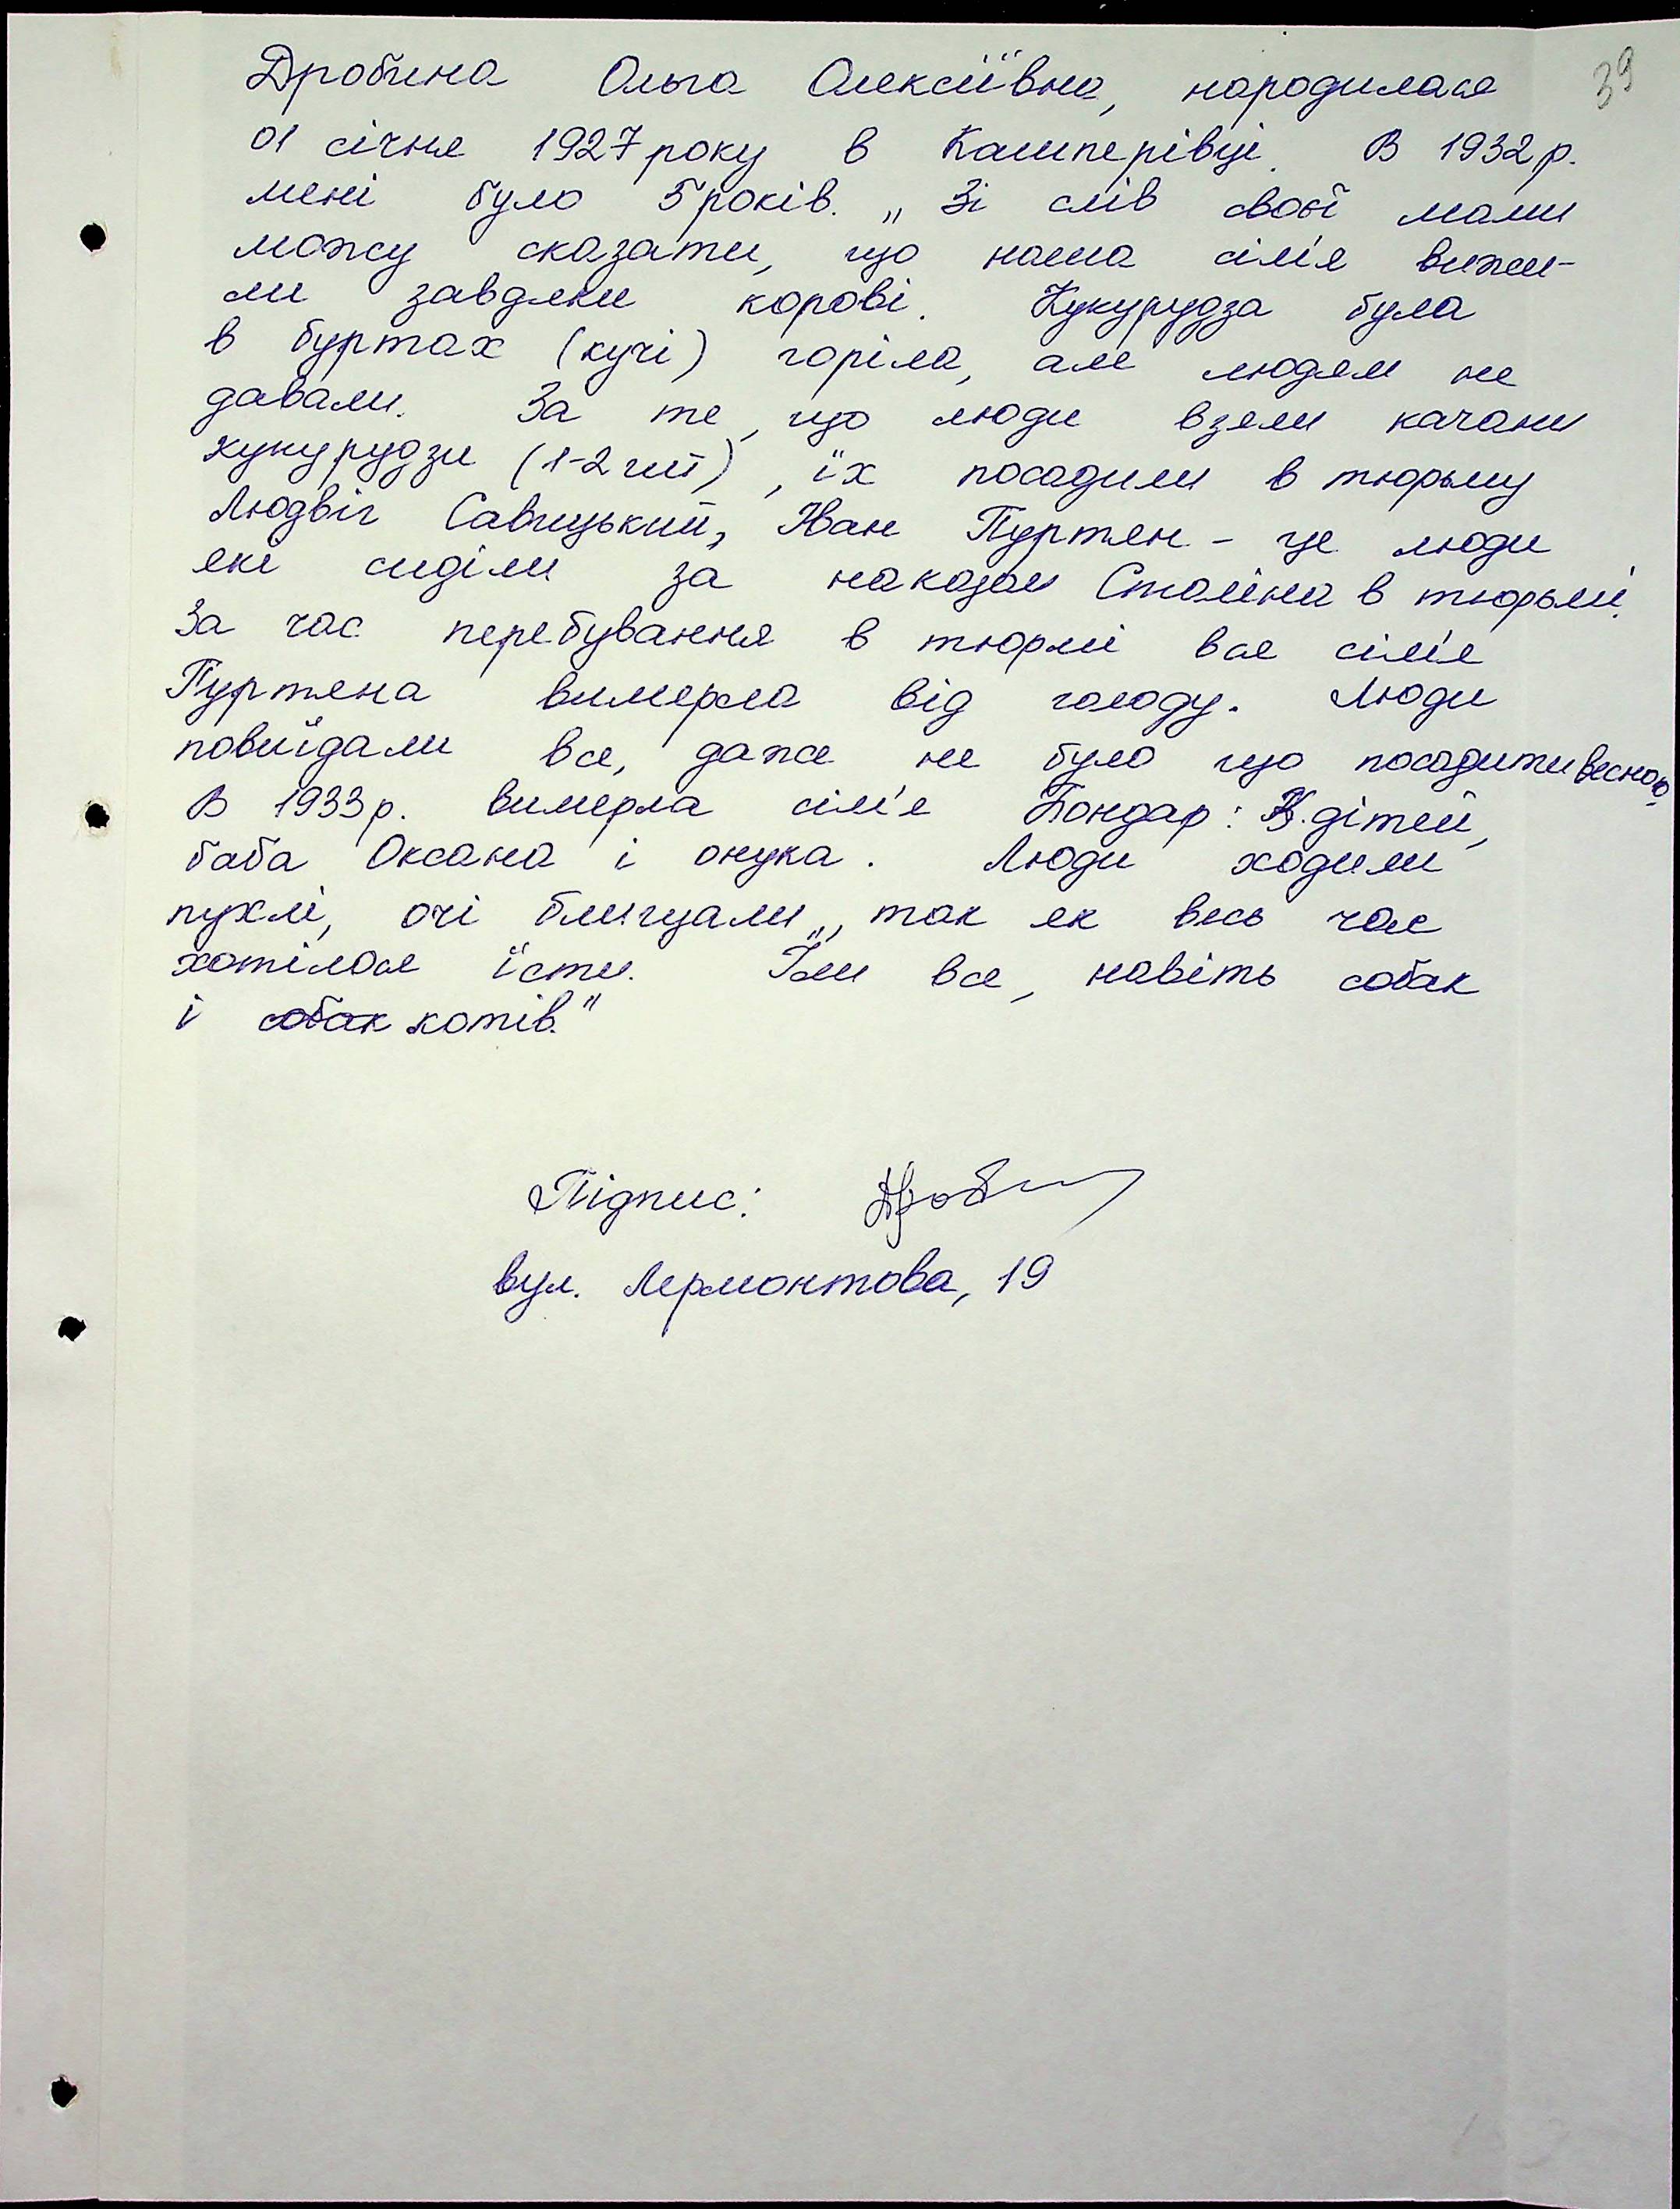 39
Дробина Ольга Олексіївна, народилася
01 січня 1927 року в Кашперівці. В 1932 р.
мені було 5 років. „Зі слів своєї мами
можу сказати, що наша сім'я вижи-
ли завдяки корові. Кукурудза була
в буртах (кучі) горіла, але людям не
давали. За те, що люди взяли качани
кукурудзи (1-2 шт), їх посадили в тюрьму
Людвіг Савицький, Іван Пуртян - це люди
які сиділи за наказом Сталіна в тюрьмі.
За час перебування в тюрмі вся сім'я
Пуртяна вимерла від голоду. Люди
повиїдали все, даже не було що посадити весною.
В 1933 р. вимерла сім'я Бондар: дітей,
баба Оксана і онука. Люди ходили
пухлі, очі блищали", так як весь час
хотілося їсти. Їли все, навіть собак
і собак котів."
Підпис: Дроб
вул. Лермонтова, 19